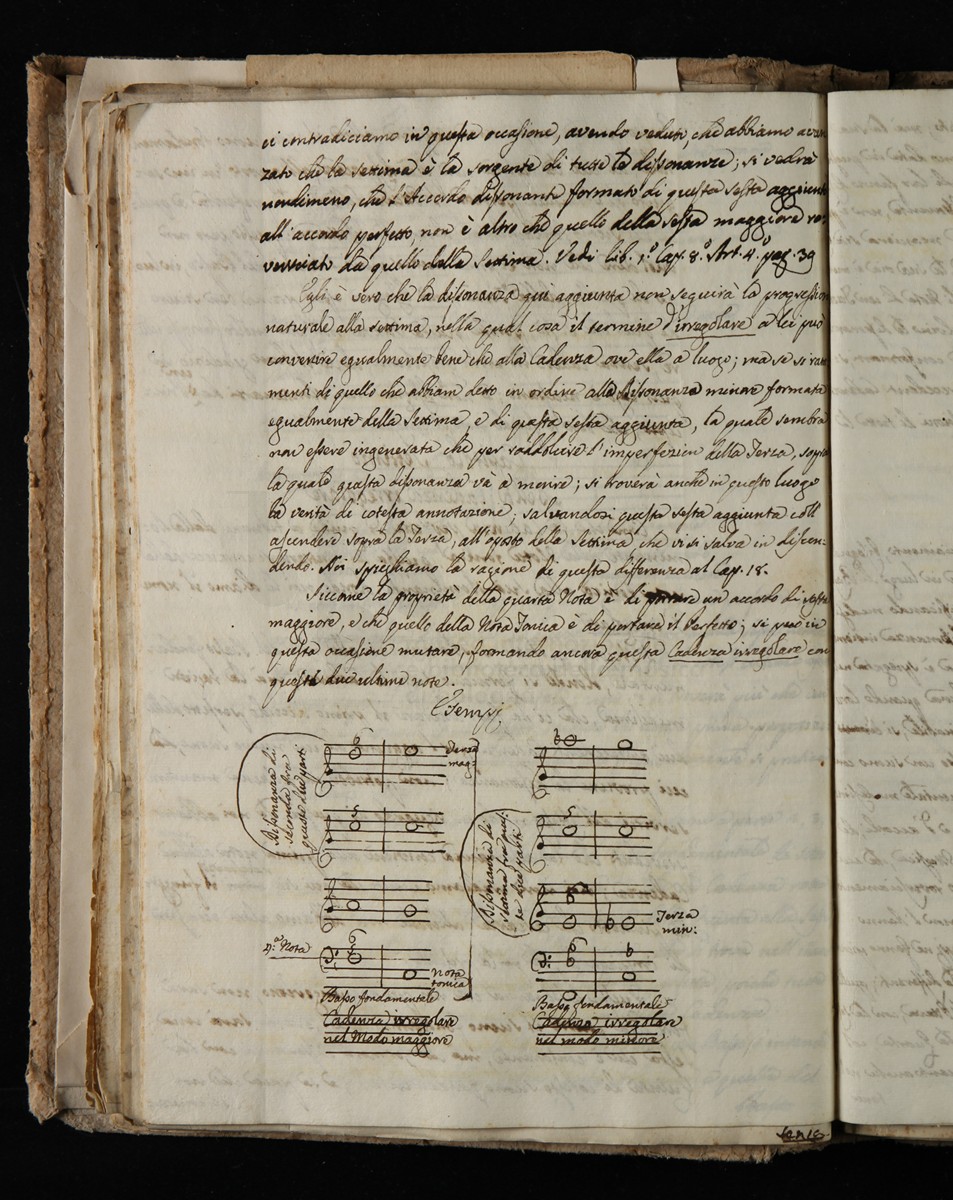 ci contradiciamo in questa occasione, avendo veduto, che abbiamo avan
zato che la settima è la sorgente di tutte le dissonanze; si vedrà
nondimeno, che l'Accordo dissonante formato di questa sesta aggiunta
all'accordo perfetto, non è altro che quello della sesta maggiore ro
vesciato da quello della settima. Vedi lib. 1.º Cap. 8.º Art. 4.º pag. 39
Egli è vero che la dissonanza qui aggiunta non seguirà la progressione
naturale alla settima, nella qual cosa il termine d'irregolare a lei può
convenire egualmente bene che alla Cadenza ove ella a luogo; ma se si ram
menti di quello che abbiam detto in ordine alla Dissonanza minore formata
egualmente della Settima, e di questa sesta aggiunta, la quale sembra
non essere ingenerata che per raddolcire l'imperfezion della Terza, sopra
la quale questa dissonanza và a morire; si troverà anche in questo luogo
la verità di cotesta annotazione; salvandosi questa sesta aggiunta coll'
ascendere sopra la Terza, all'oposto della Settima, che vi si salva in discen-
dendo. Noi spieghiamo la ragione di questa differenza al Cap. 18.
Siccome la proprietà della quarta Nota è di portare un accordo di sesta
maggiore, e che quello della Nota Tonica è di portare il Perfetto; si può in
questa occasione mutare, formando ancora questa Cadenza irregolare con
queste due ultime note.
Esempj
Dissonanza di
seconda fra
queste due parti
Terza
mag:
Dissonanza di
settima fra ques-
te due parti
Terza
min:
4.ª Nota
6
6
Nota
tonica
Basso fondamentale
Cadenza irregolare
nel Modo maggiore
Basso fondamentale
Cadenza irregolare
nel modo minore